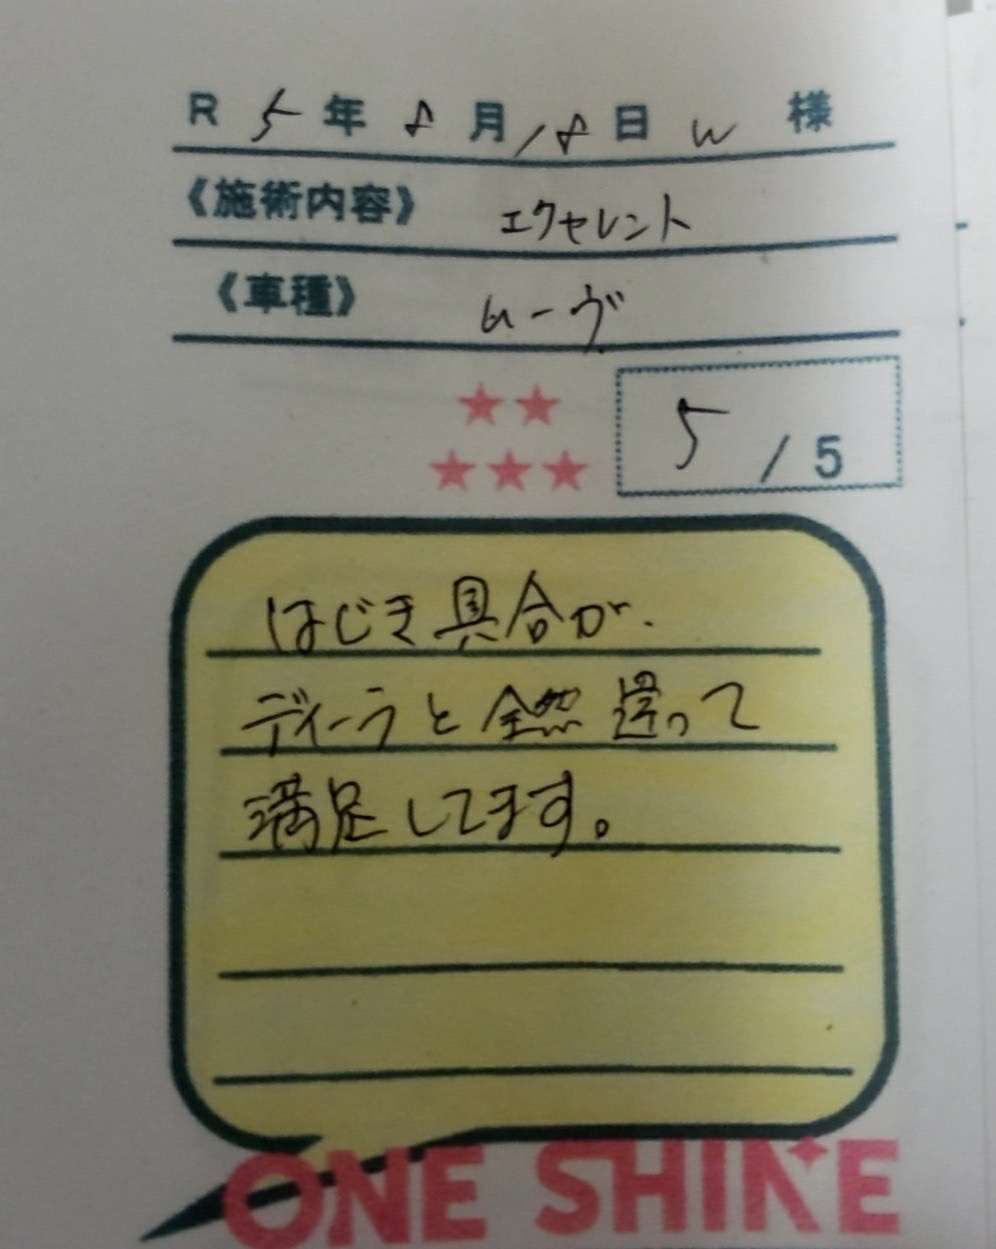 R 5年 8月 18日 W 様
《施術内容》 エクセレント
《車種》 ムーヴ
★★
★★★ 5 / 5
はじき具合が、
ディーラと全然違って
満足してます。
ONE SHINE